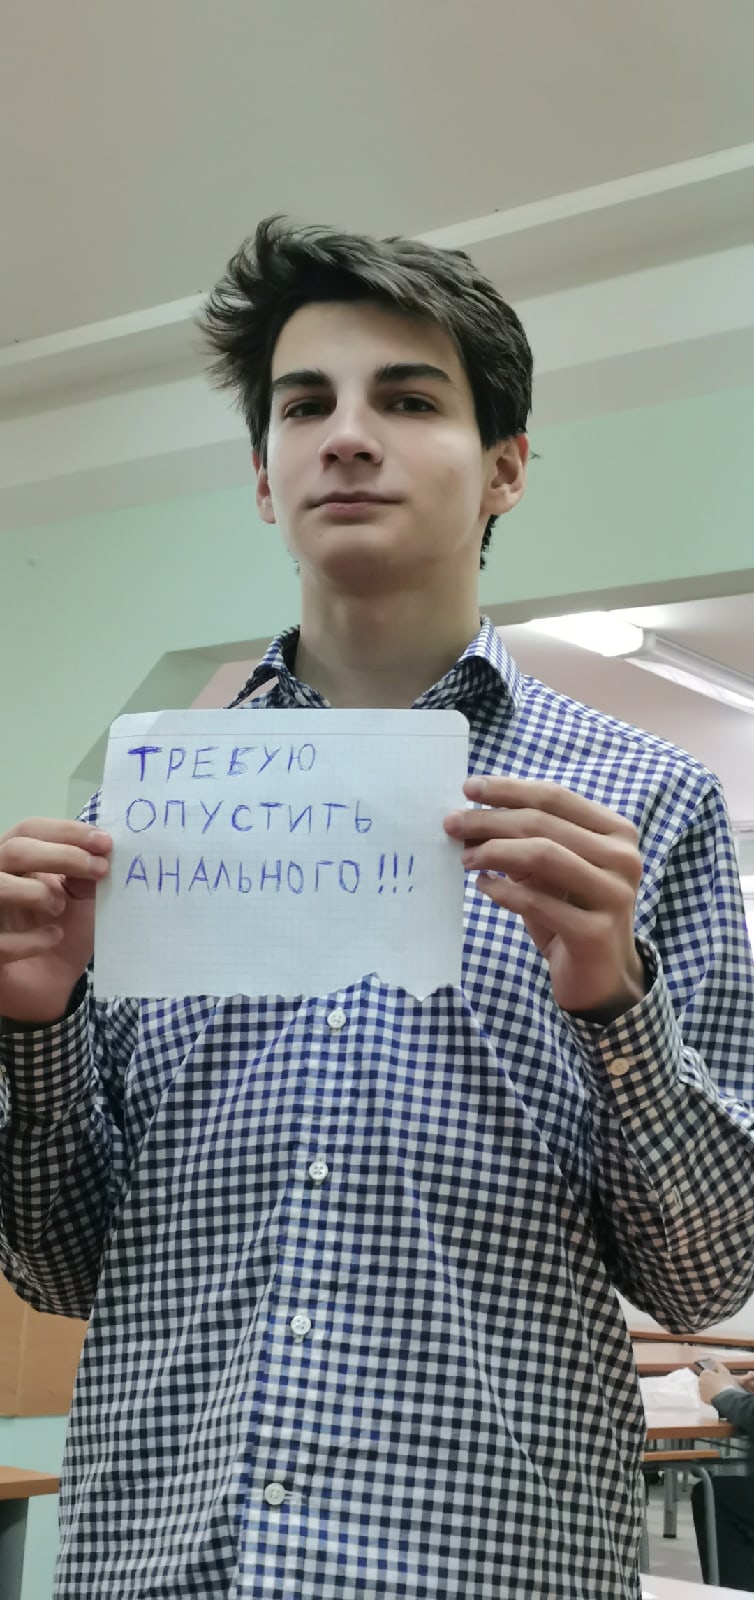 ТРЕБУЮ
ОПУСТИТЬ
АНАЛЬНОГО!!!